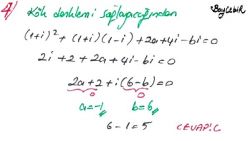 4) Kök denklemi sağlayacağından
(1+i)² + (1+i)(1-i) + 2a+4i-bi=0
2i + 2 + 2a + 4i - bi = 0
2a+2 + i(6-b) = 0
0 0
a=-1 b=6
6-1=5 CEVAP:C